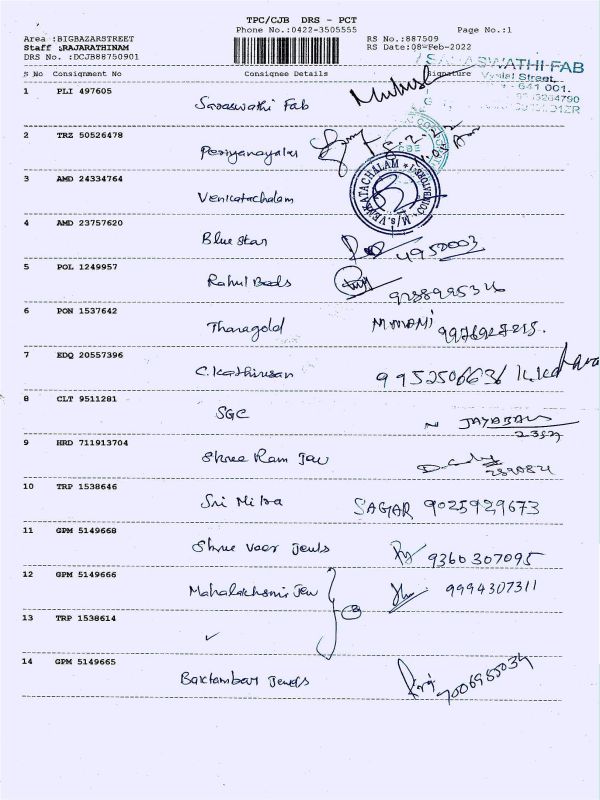 TPC/CJB DRS - PCT
Phone No.:0422-3505555 Page No.:1
Area :BIGBAZARSTREET RS No.:887509
Staff :RAJARATHINAM RS Date:08-Feb-2022
DRS No. :DCJB88750901
SARASWATHI FAB
Street,
- 641 001.
S No Consignment No Consignee Details Signature
1 PLI 497605 Saraswathi Fab
2 TRZ 50526478 Periyanayaki
3 AMD 24334764 Venkatachalam
M/s. VENKATACHALAM
4 AMD 23757620 Blue Star
5 POL 1249957 Rahul Beeds
6 PON 1537642 Tharagold M. MANI
7 EDQ 20557396 C. Kathirvsan 9952506636
8 CLT 9511281 SGC
9 HRD 711913704 Shree Ram Jew
10 TRP 1538646 Sri Mitra SAGAR 9025929673
11 GPM 5149668 Shree Veer Jewls 9360307095
12 GPM 5149666 Mahalakshmi Jew 9994307311
13 TRP 1538614 ✓
14 GPM 5149665 Baktambar Jewels